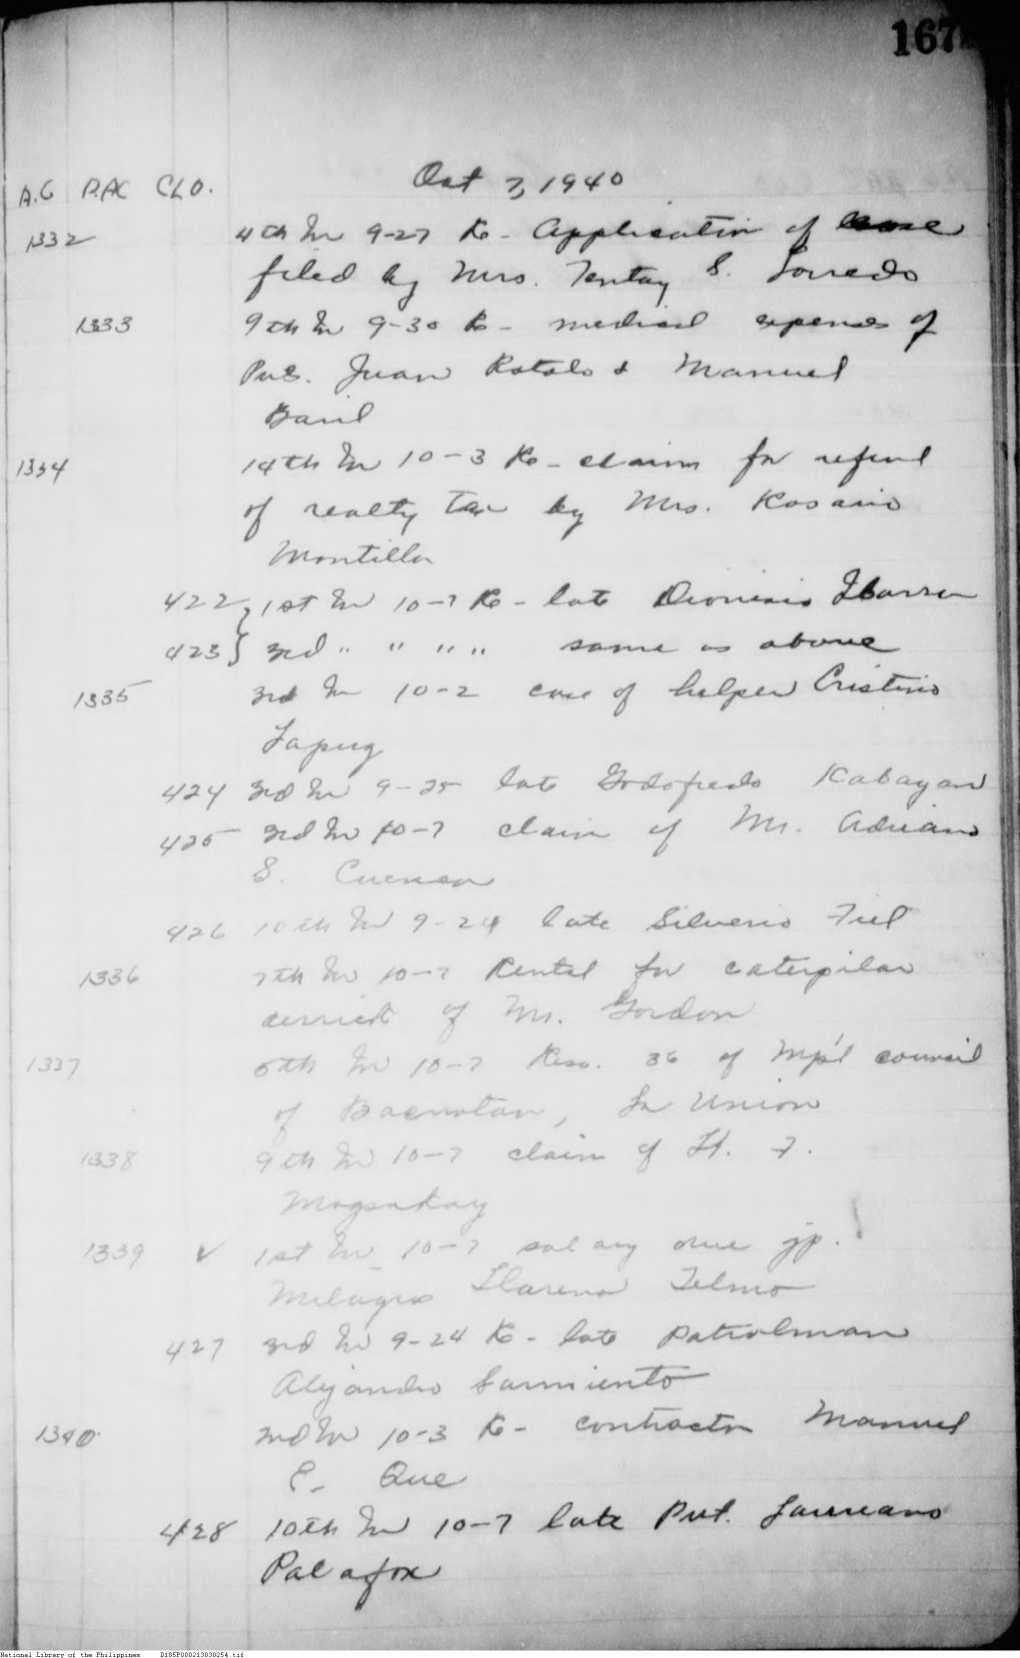 167
Oct 7, 1940
A.G P.AC CLO.
1332 4th In 9-27 Re - Application of lease
filed by Mrs. Tentay S. Loredo
1333 9th In 9-30 Re - medical expenses of
Pvts. Juan Rotalo & Manuel
Baril
1334 14th In 10-3 Re - claim for refund
of realty tax by Mrs. Rosario
Montilla
422 } 1st In 10-7 Re - late Dionisio Ibarra
423 } 3rd " " " " same as above
1335 3rd In 10-2 case of helper Cristino
Lapug
424 3rd In 9-25 late Godofredo Kabayan
425 3rd In 10-7 claim of Mr. Adriano
S. Cuenca
426 10th In 9-24 late Silverio Fiel
1336 7th In 10-7 Rental for caterpilar
derrick of Mr. Gordon
1337 5th In 10-7 Reso. 36 of Mp'l council
of Bacnotan, La Union
1338 9th In 10-7 claim of Lt. F.
Magsakay
1339 ✓ 1st In 10-7 salary due jp.
Milagros Llarena Telmo
427 3rd In 9-24 Re - late patrolman
Alejandro Sarmiento
1340 2nd In 10-3 Re - contractor Manuel
E. Que
428 10th In 10-7 late Pvt. Laureano
Palafox
National Library of the Philippines D185P000213030254.tif